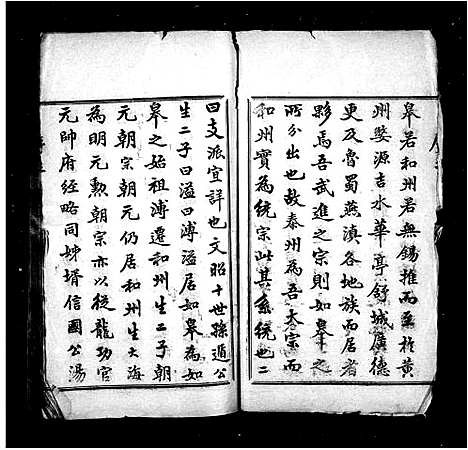 皋若和州若無錫推而至於黃
州婺源吉水華亭舒城廣德
更及魯蜀燕滇各地族而居者
夥焉吾武進之宗則如皋之
所分出也故泰州為吾大宗而
和州實為統宗此其系統也二
曰支派宜詳也文昭十世孫通公
生二子曰溢曰溥溢居如皋為如
皋之始祖溥遷和州生二子朝
元朝宗朝元仍居和州生大海
為明元勲朝宗亦以從龍功官
元帥府經略同姊壻信國公湯